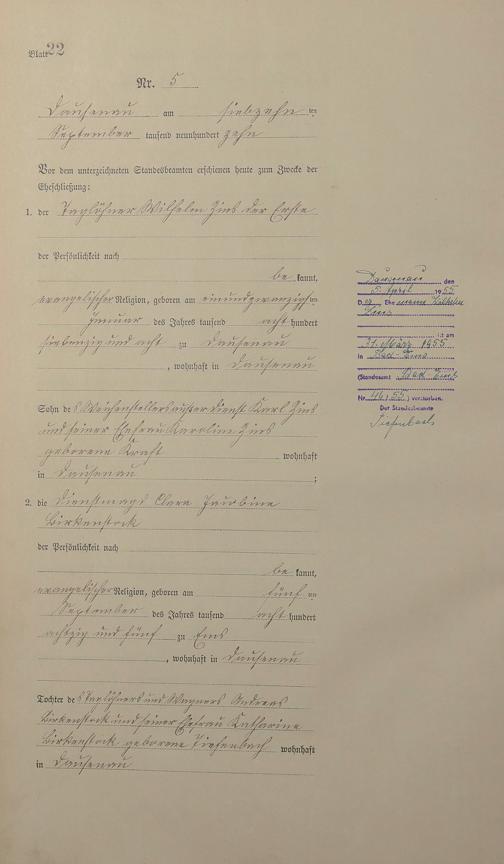 Blatt 22
Nr. 5
Dausenau am siebzehn ten
September tausend neunhundert zehn
Vor dem unterzeichneten Standesbeamten erschienen heute zum Zwecke der
Eheschließung:
1. der Taglöhner Wilhelm Zins der Erste
der Persönlichkeit nach
be kannt,
evangelischer Religion, geboren am einundzwanzigsten
Januar des Jahres tausend acht hundert
siebenzig und acht zu Dausenau
, wohnhaft in Dausenau
Sohn des Weichenstellers außer dienst Karl Zins
und seiner Ehefrau Karoline Zins
geborene Kraft wohnhaft
in Dausenau ;
2. die Dienstmagd Clara
Birkenstock
der Persönlichkeit nach
be kannt,
evangelischer Religion, geboren am fünf ten
September des Jahres tausend acht hundert
achtzig und fünf zu Ems
, wohnhaft in Dausenau
Tochter des Taglöhners und Wagners Andreas
Birkenstock und seiner Ehefrau Katharine
Birkenstock geborene Tiefenbach wohnhaft
in Dausenau
Dausenau den
5. April 1955
Der Ehemann Wilhelm
Zins
ist am
31. März 1955
in Bad-Ems
(Standesamt Bad-Ems
Nr 46/55) verstorben.
Der Standesbeamte
Tiefenbach